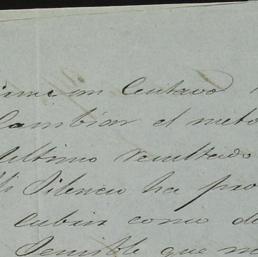 mi Centavo
Cambiar el meto
Ultimo resultado
Mi Silencio ha pro
como de
Sensible que no